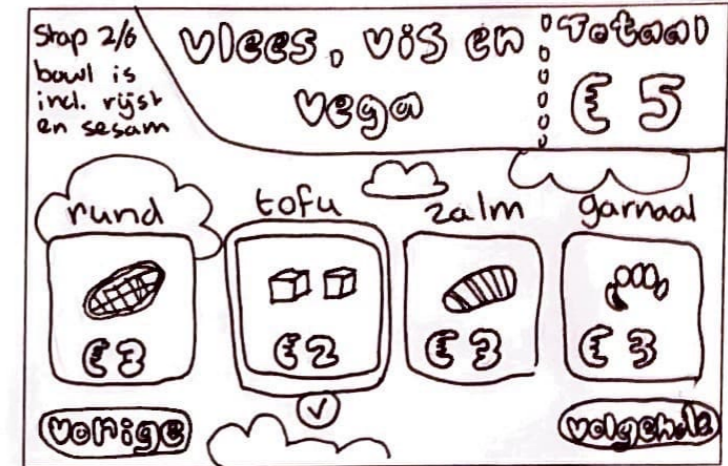 Stap 2/6
bowl is
incl. rijst
en sesam
vlees, vis en
vega
Totaal
€ 5
rund
tofu
zalm
garnaal
€ 3
€ 2
€ 3
€ 3
vorige
volgende